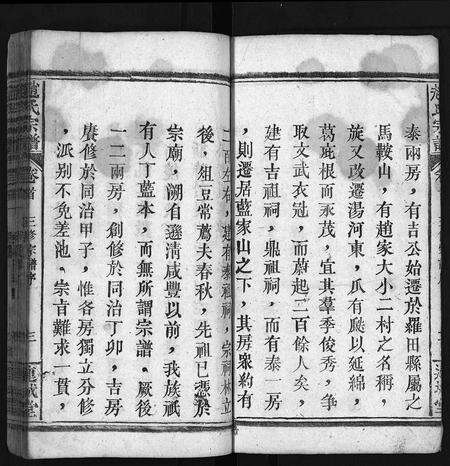 泰兩房，有吉公始遷於羅田縣屬之
馬鞍山，有趙家大小二村之名稱，
旋又改遷湯河東，瓜有瓞以延綿，
葛庇根而永茂，宜其羣季俊秀，爭
取文武衣冠，而蔚起二百餘人矣，
則遷居藍家山之下，其房衆約有
建有吉祖祠，鼎祖祠，而有泰一房
二百右右，建有泰祖祠，宗祠林立
後，俎豆常薦夫春秋，先祖已憑於
宗廟，溯自遜清咸豐以前，我族祇
有人丁藍本，而無所謂宗譜，厥後
一二兩房，創修於同治丁卯，吉房
賡修於同治甲子，惟各房獨立分修
，派別不免差池，宗旨難求一貫，
趙氏宗譜
卷首
三修宗譜序
三